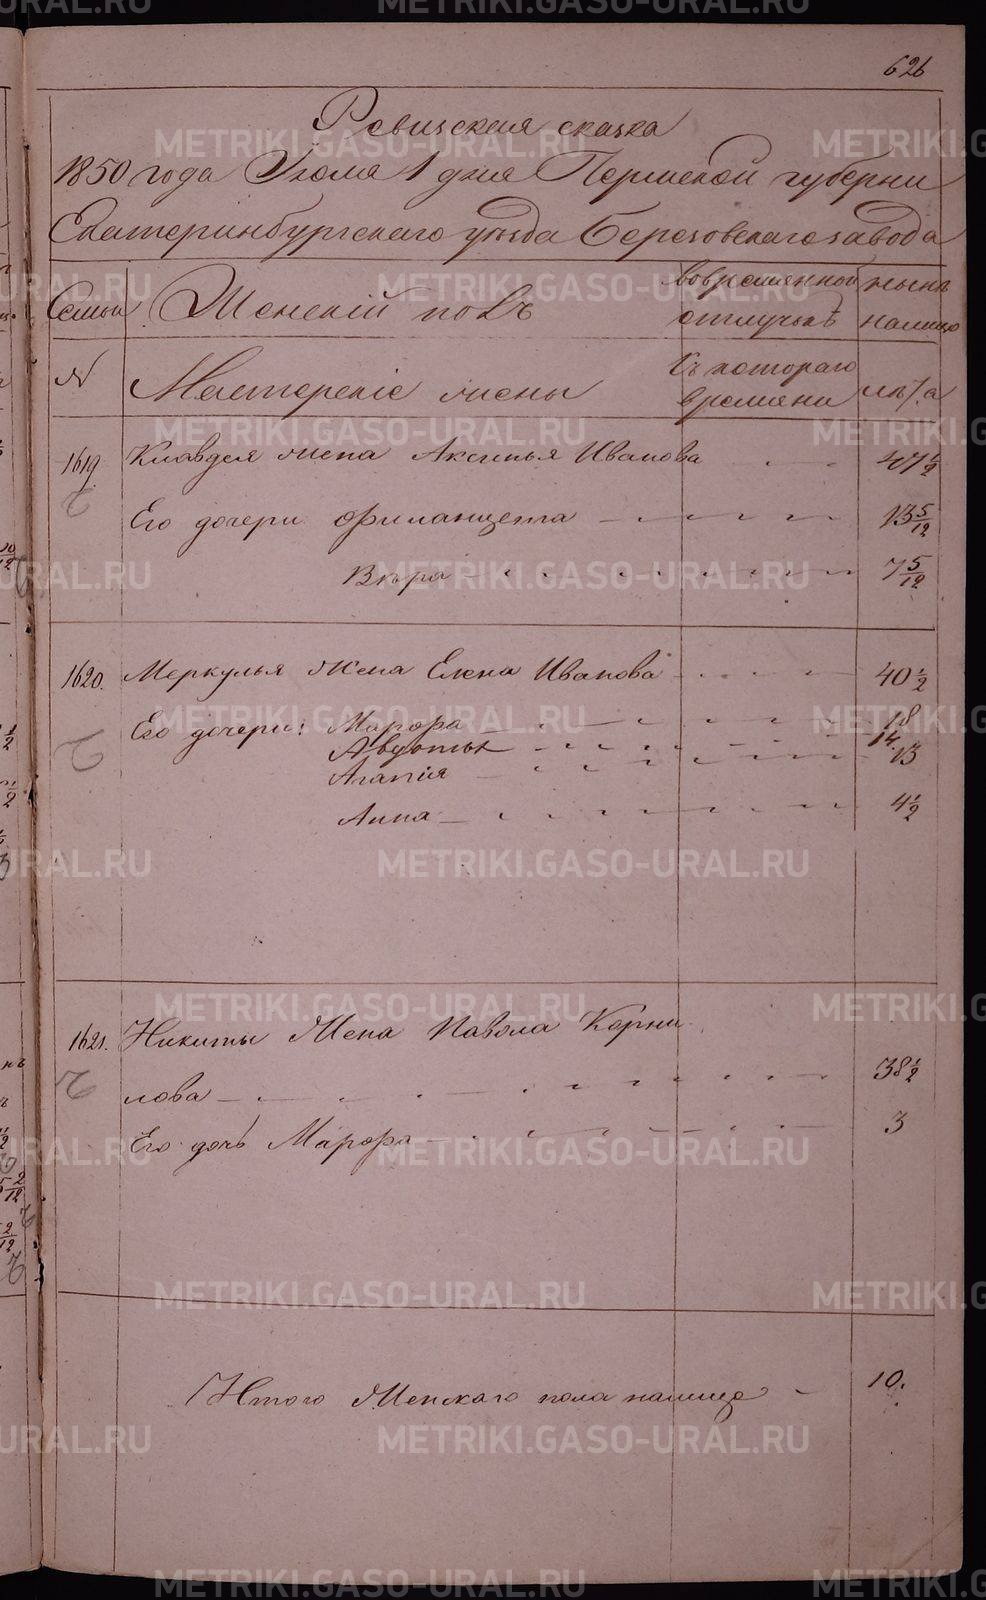 626
Ревизская сказка
1850 года Июля 1 дня Пермской губерни
Екатеринбургского уезда Березовского завода
Семьи Женский полъ вовременной отлучьке ныне налицо
№ Мастерскіе жены Съ котораго времяни лѣта
1619. Клавдея жена Аксинья Иванова 47 1/2
Его дочери Филанцета 13 5/12
Вера 7 5/12
1620. Меркулья жена Елена Иванова 40 1/2
Его дочери: Марфра 18
Авдотья 14.
Агапія 13
Анна 4 1/2
1621. Никиты жена Павола Корни
лова 38 1/2
Его дочь Марфра 3
Итого женскаго пола налицо 10.
METRIKI.GASO-URAL.RU